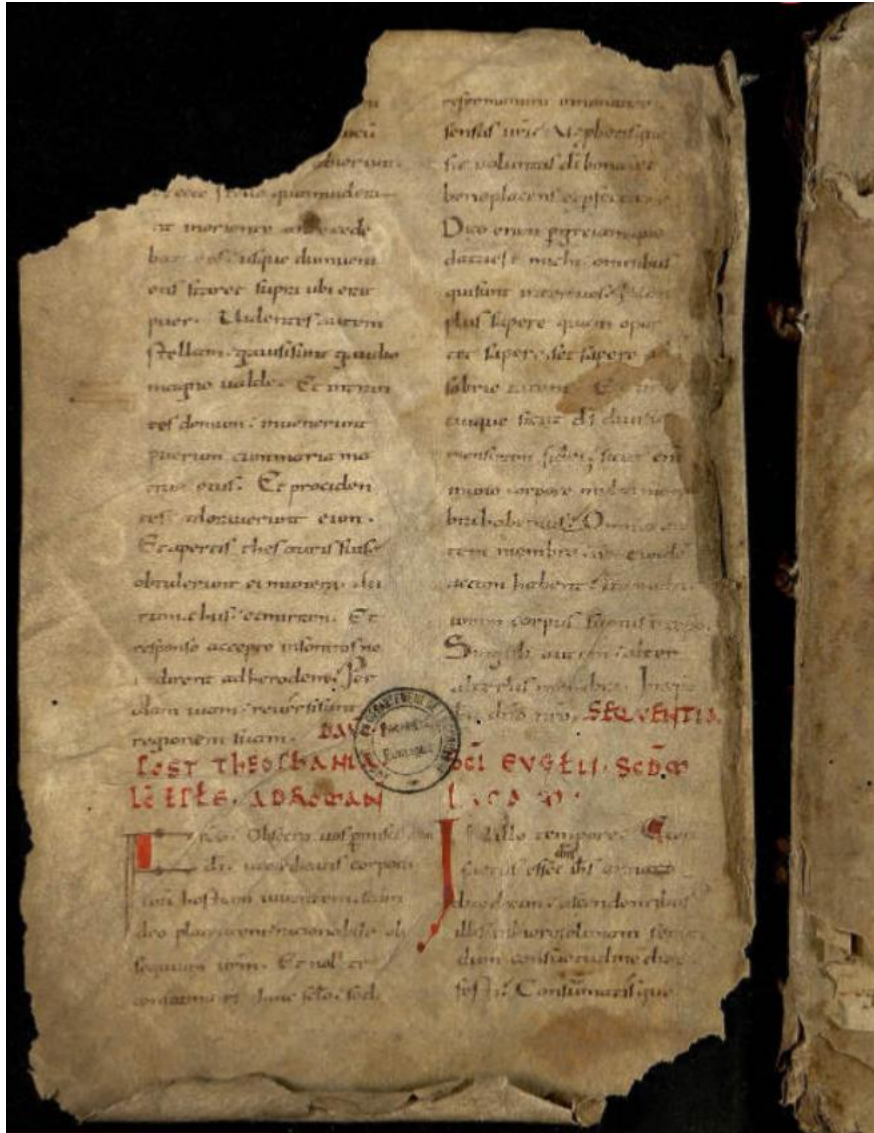 obierunt.
Et ecce stella quam uidera
nt in oriente antecede
bat eos. usque dum ueni
ens staret supra ubi erat
puer. Uidentes autem
stellam. gauisi sunt gaudio
magno ualde. Et intran
tes domum. inuenerunt
puerum cum maria ma
tre eius. Et prociden
tes adorauerunt eum.
Et apertis thesauris suis
obtulerunt ei munera. au
rum. thus. et mirram. Et
responso accepto in somnis ne
redirent ad herodem. Per
aliam uiam. reuersi sunt in
regionem suam. DOM I
POST THEOPHANIA
LC EPLE. AD ROMAN
Fres. Obsecro uos p misericordiam
di. ut exhibeatis corpora
hostiam uiuentem. scam
deo placentem. rationabile ob
sequium urm. Et nolite
conformari huic sclo. sed
reformamini in nouitate
sensus uri. Ut probetis que
sit uoluntas di bona. et
beneplacens et pfecta.
Dico enim p gratiam que
data est michi. omnibus
qui sunt inter uos. Non
plus sapere quam opor
tet sapere. set sapere ad
sobrietatem. Et uni
cuique sicut ds diuisit
mensuram fidei. Sicut eni
in uno corpore multa mem
bra habemus. Omnia au
tem membra. non eunde
actum habent. Ita multi
unum corpus sumus in xpo.
Singuli autem. alter
alterius membra. In xpo
ihu dno nro. SEQUENTIA
SCI EUGELII. SCDM
LUCAM.
In illo tempore. Cum
factus esset ihs annorum
duodecim. ascendentibus
illis in ierosolimam secun
dum consuetudine diei
festi. Consumatisque